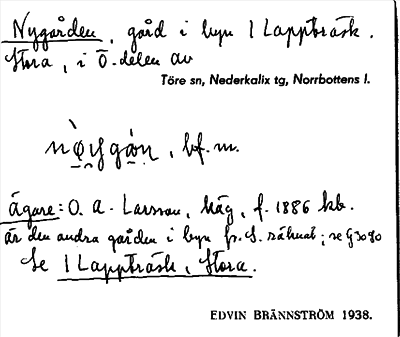 Nygården, gård i byn 1 Lappträsk,
Stora, i Ö-delen av
Töre sn, Nederkalix tg, Norrbottens l.
bf. m.
Ägare: O. A. Larsson, häg, f. 1886 hb.
är den andra gården i byn fr. S. räknat; se
Se 1 Lappträsk, Stora.
EDVIN BRÄNNSTRÖM 1938.